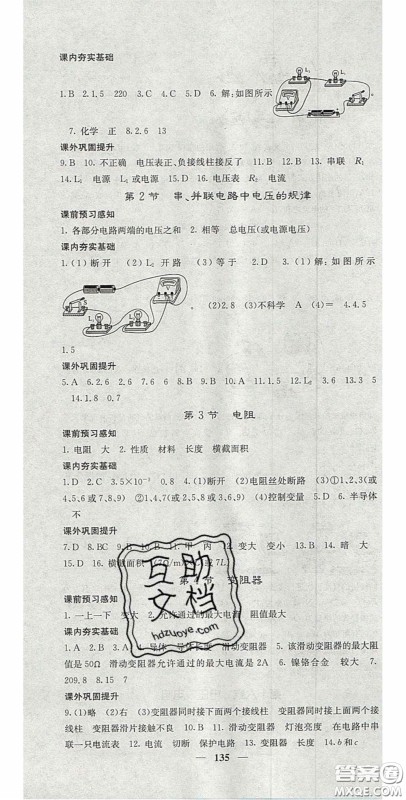 课内夯实基础
1. B 2. 1.5 220 3. C 4. C 5. D 6. 解:如图所示
7. 化学 正 8. 2.6 13
课外巩固提升
9. B 10. 不正确 电压表正、负接线柱接反了 11. D 12. D 13. 串联 R₂
14. L₁ 电源 L₁或电源 15. D 16. D 17. 电压表 R₂ 电压 电流
第2节 串、并联电路中电压的规律
课前预习感知
1. 各部分电路两端的电压之和 2. 相等 总电压(或电源电压)
课内夯实基础
1. (1)断开 (2)L₂ 开路 (3)等于 2. D 3. (1)解:如图所示
(2)2.8 (3)不科学 A (4)= 4. 4.5
1.5
课外巩固提升
5. A 6. 2.6 2.6 7. D 8. 6 3 9. A 10. B 11. A 12. D 13. 5
14. 1.8 0.7
第3节 电阻
课前预习感知
1. 电阻 大 2. 性质 材料 长度 横截面积
课内夯实基础
1. D 2. C 3. 3.5×10⁻² 0.035 4. (1)断开 (2)电阻丝处断路 (3)①1、2、3(或
4、5、6或7、8、9) ②1、4、7(或2、5、8或3、6、9) (4)控制变量 5. D 6. 半导体
不
课外巩固提升
7. D 8. BC 9. B 10.
变大 变小 13. B 14. 暗 大
15. D 16. 横截面积
变阻器
课前预习感知
1. 一上一下 变大 2. 允许通过的最大电流 阻值最大
课内夯实基础
1. A 2. B
滑动变阻器 5. 该滑动变阻器的最大阻
值是50Ω 滑动变阻器允许通过的最大电流是2A 6. 镍铬合金 较大 7.
209.8 8. 15
课外巩固提升
9. (1)略 (2)右 (3)变阻器同时接下面两个接线柱 变阻器同时接上面两个接线柱
变阻器滑片接触不良 10. D 11. 滑动变阻器 灯泡亮度 在电路中串
联一只电流表 12. 电流 切断 保护电路 13. C 14. b和c
135
互助
文档
hdzuoye.com
答案圈
MXQE.COM